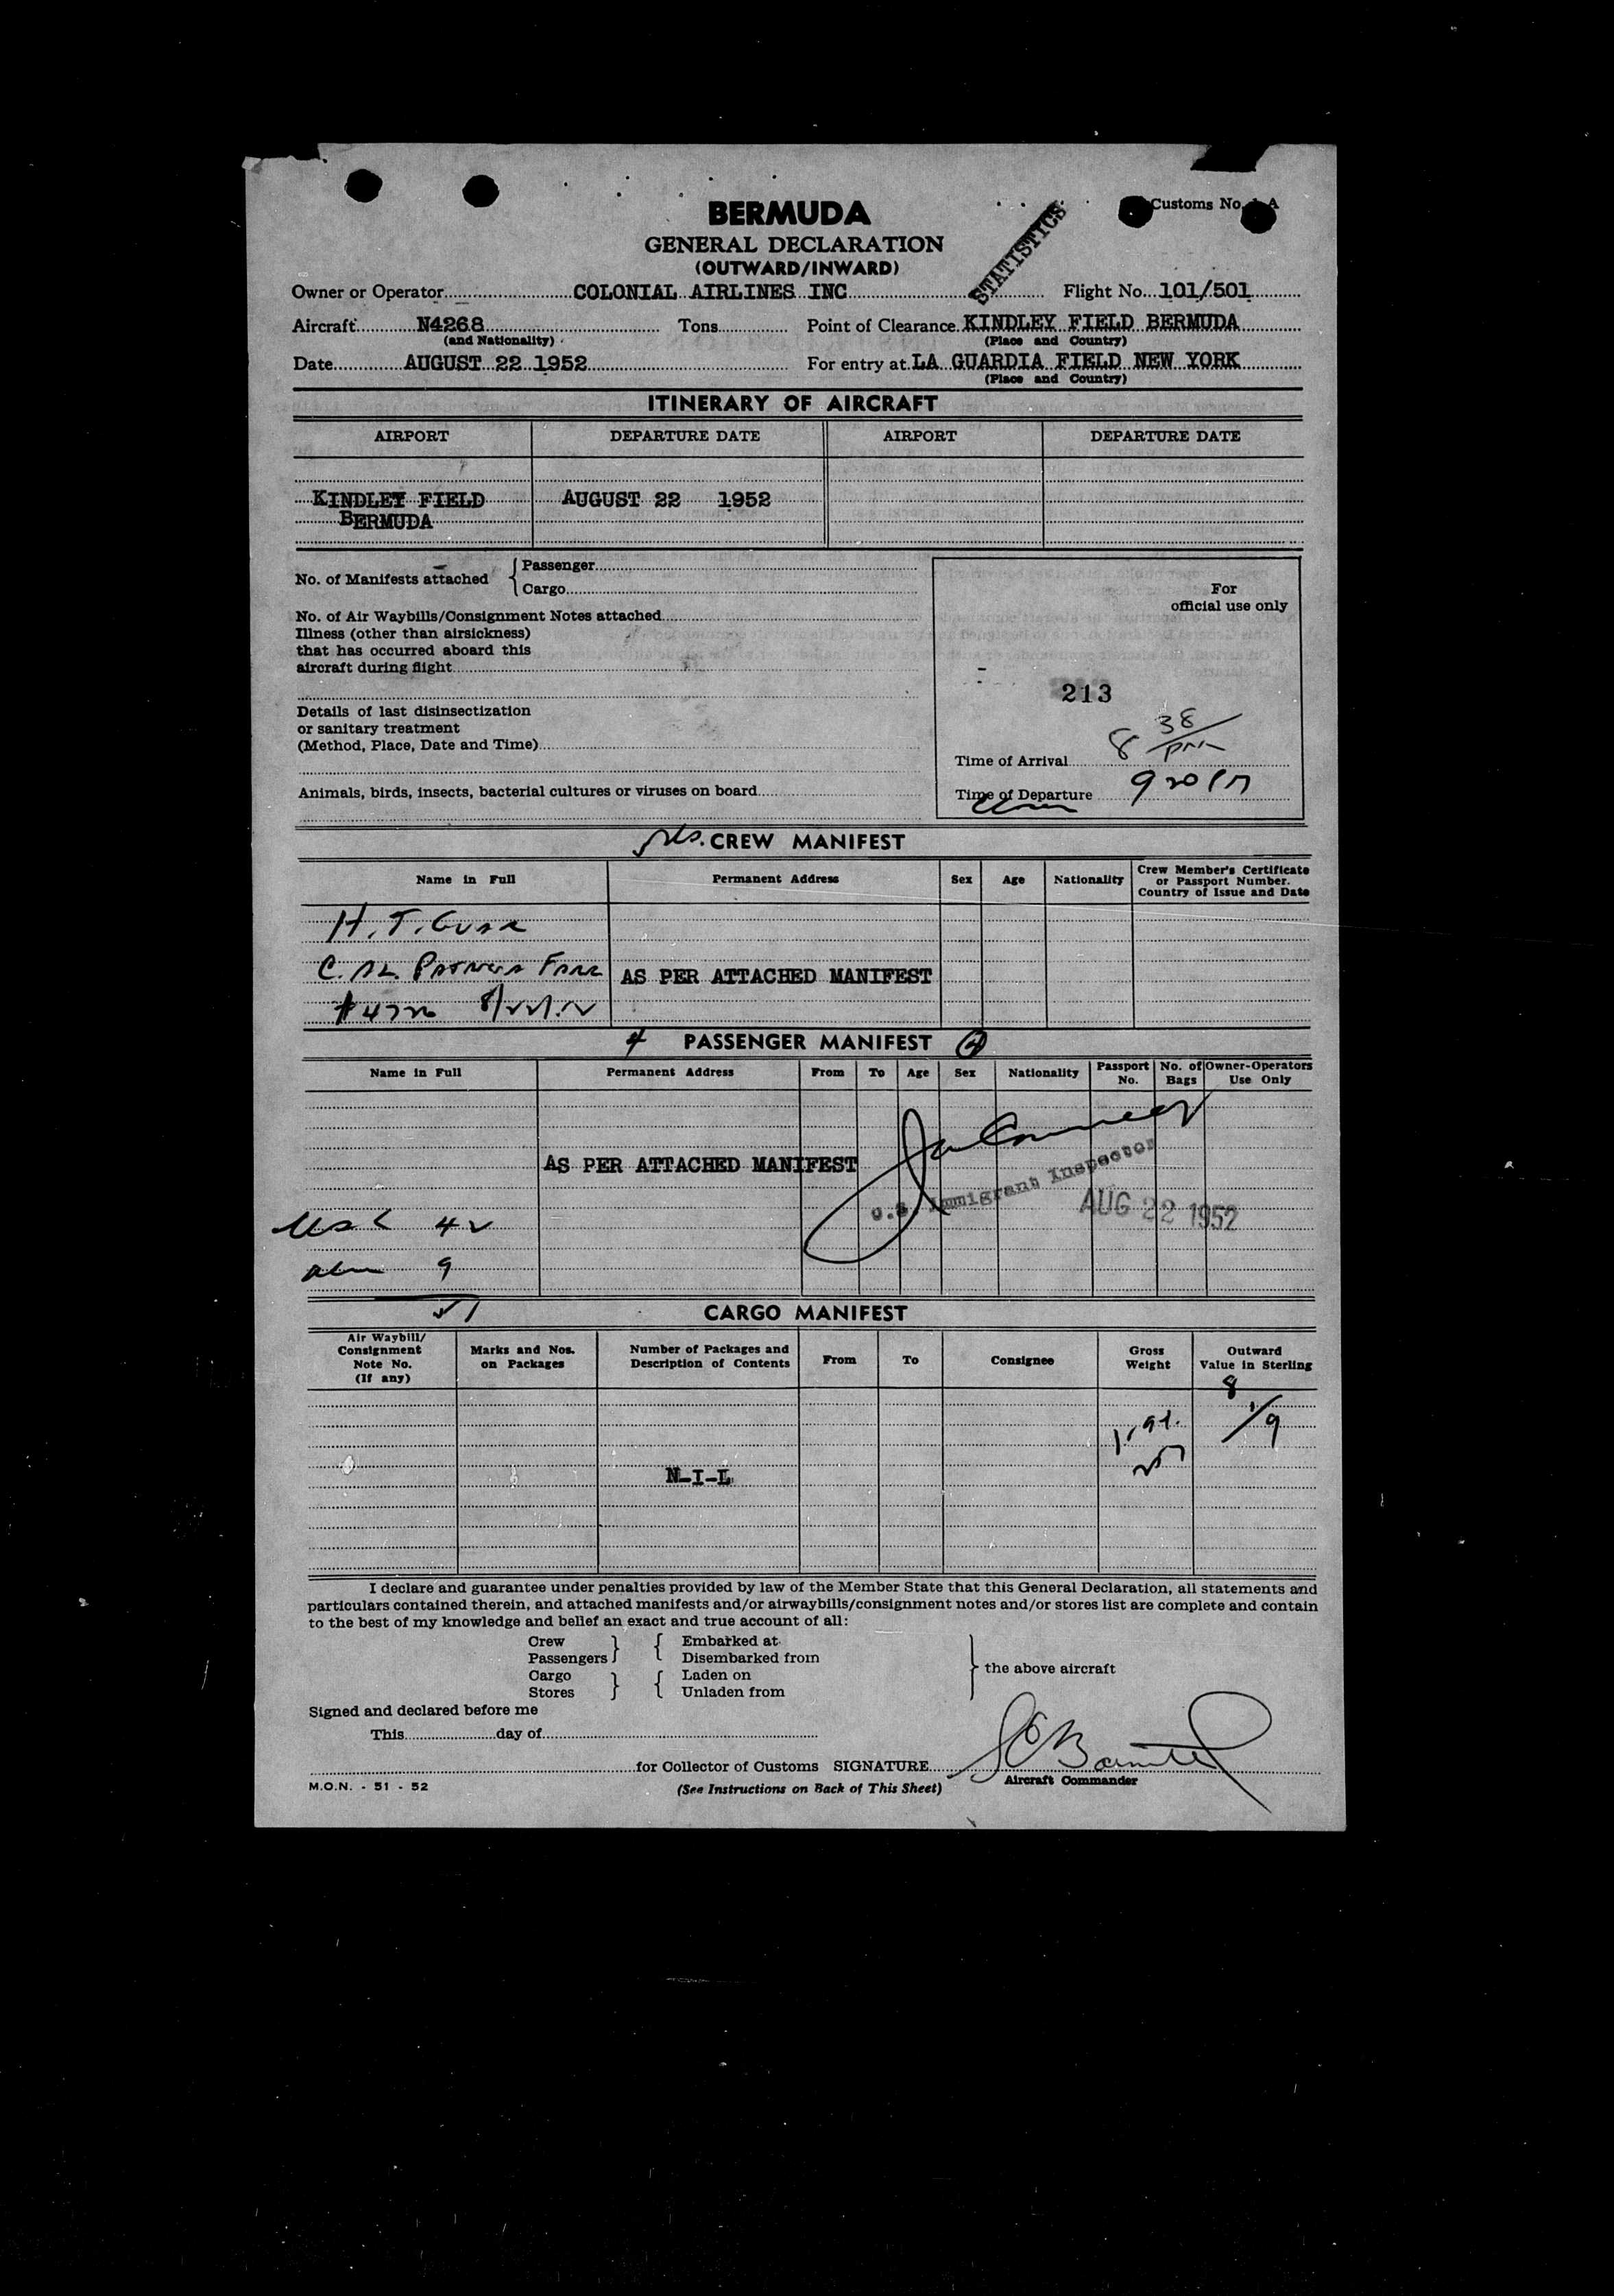 Customs No. A
BERMUDA
GENERAL DECLARATION
(OUTWARD/INWARD)
STATISTICS
Owner or Operator COLONIAL AIRLINES INC Flight No. 101/501
Aircraft N4268 Tons Point of Clearance KINDLEY FIELD BERMUDA
(and Nationality) (Place and Country)
Date AUGUST 22 1952 For entry at LA GUARDIA FIELD NEW YORK
(Place and Country)
ITINERARY OF AIRCRAFT
AIRPORT DEPARTURE DATE AIRPORT DEPARTURE DATE
KINDLEY FIELD AUGUST 22 1952
BERMUDA
No. of Manifests attached { Passenger
Cargo
No. of Air Waybills/Consignment Notes attached
Illness (other than airsickness)
that has occurred aboard this
aircraft during flight
Details of last disinsectization
or sanitary treatment
(Method, Place, Date and Time)
Animals, birds, insects, bacterial cultures or viruses on board
For
official use only
213
Time of Arrival 8 38/pm
Time of Departure 920
CREW MANIFEST
Name in Full Permanent Address Sex Age Nationality Crew Member's Certificate
or Passport Number.
Country of Issue and Date
H. T.
AS PER ATTACHED MANIFEST
4 PASSENGER MANIFEST
Name in Full Permanent Address From To Age Sex Nationality Passport No. No. of Bags Owner-Operators Use Only
AS PER ATTACHED MANIFEST
U.S. Immigrant Inspector
AUG 22 1952
9
CARGO MANIFEST
Air Waybill/
Consignment
Note No.
(If any)
Marks and Nos.
on Packages
Number of Packages and
Description of Contents
From To Consignee
Gross
Weight
Outward
Value in Sterling
8
1/9
N-I-L
I declare and guarantee under penalties provided by law of the Member State that this General Declaration, all statements and
particulars contained therein, and attached manifests and/or airwaybills/consignment notes and/or stores list are complete and contain
to the best of my knowledge and belief an exact and true account of all:
Crew } { Embarked at
Passengers Disembarked from
Cargo } { Laden on
Stores Unladen from
} the above aircraft
Signed and declared before me
This day of
for Collector of Customs SIGNATURE
Aircraft Commander
M.O.N. - 51 - 52
(See Instructions on Back of This Sheet)